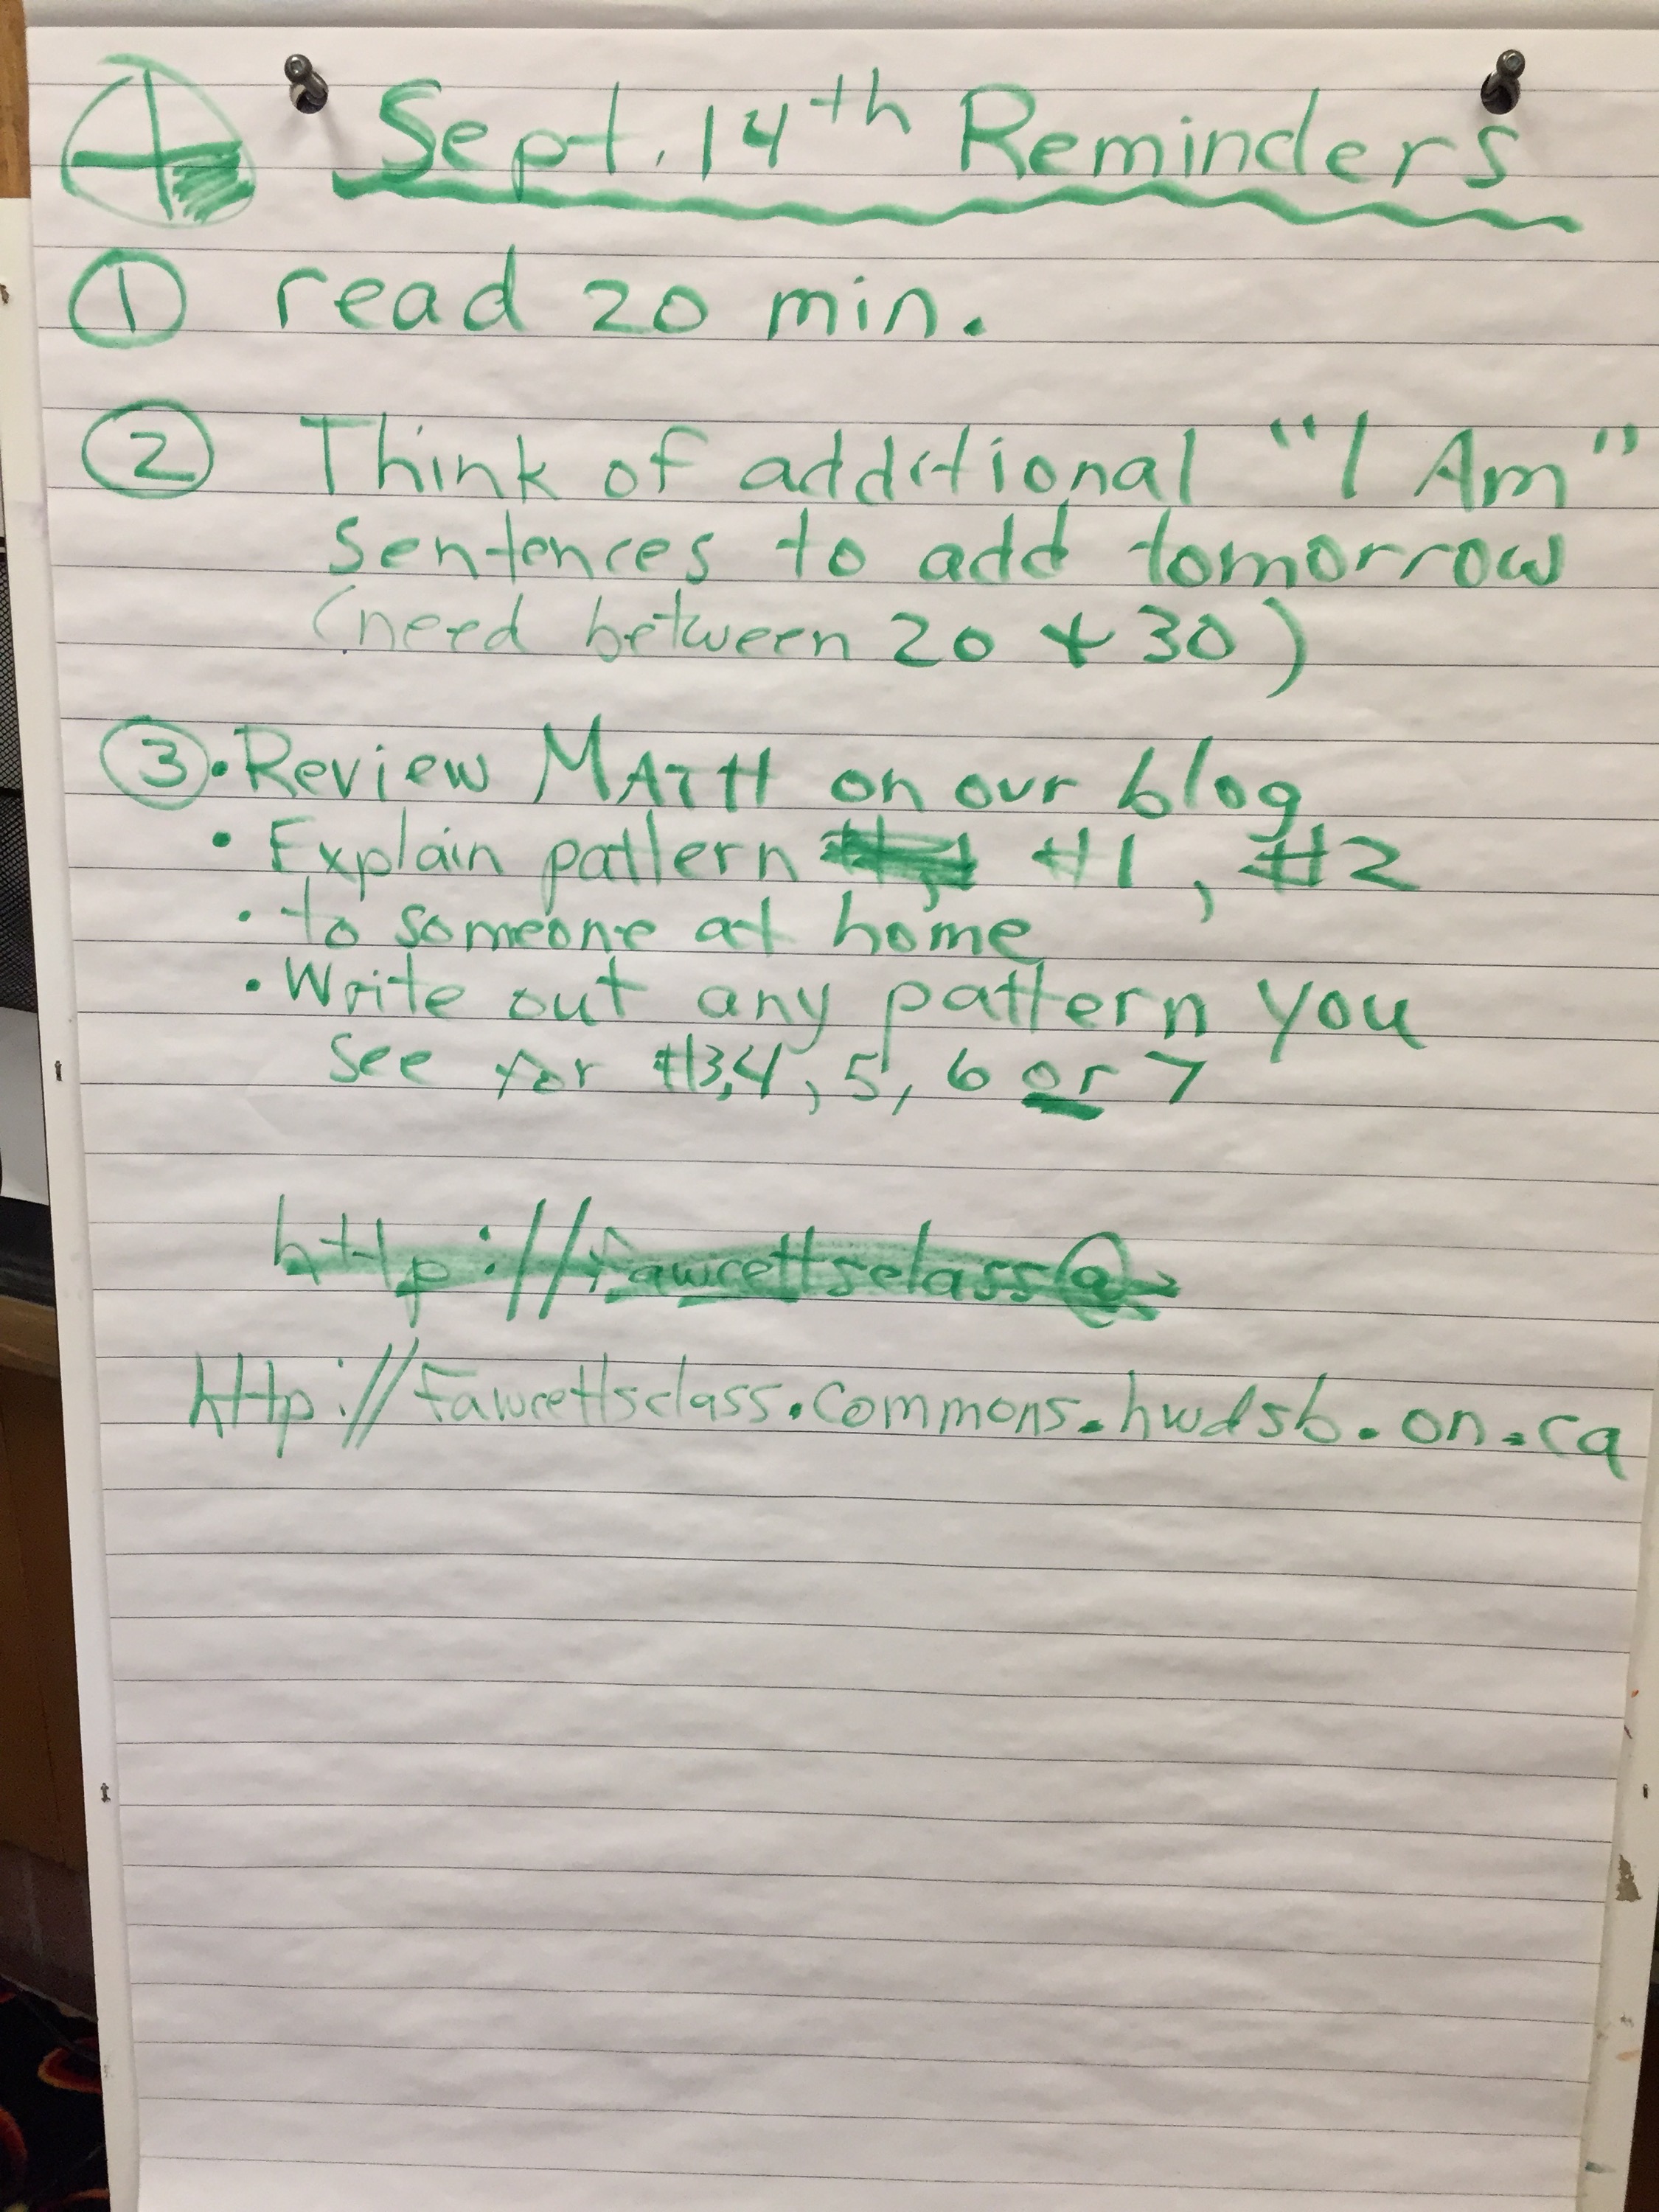 Sept. 14th Reminders
1 read 20 min.
2 Think of additional "I Am"
sentences to add tomorrow
(need between 20 & 30)
3 • Review MATH on our blog
• Explain pattern #1, #2
• to someone at home
• Write out any pattern you
see for #3,4, 5, 6 or 7
http://fawcettsclass@
http://fawcettsclass.commons.hwdsb.on.ca